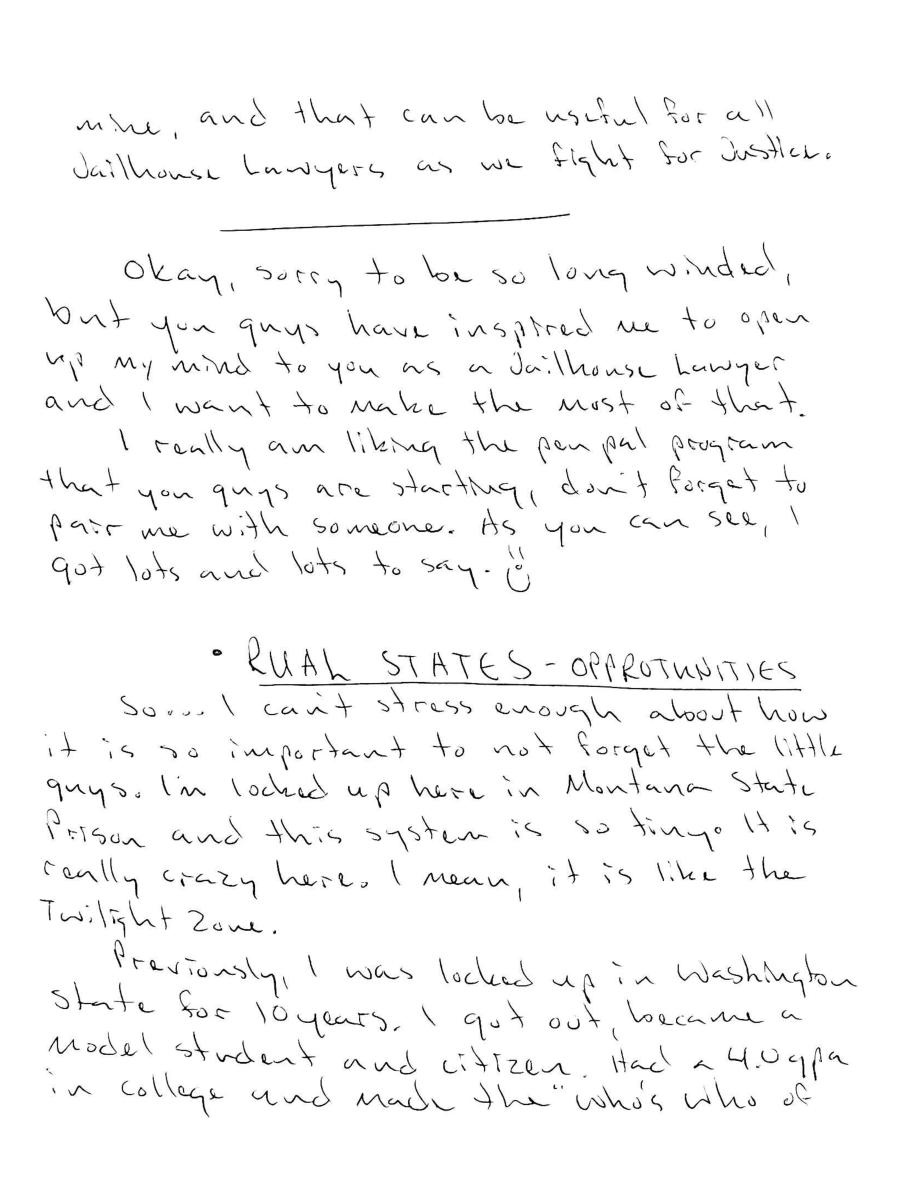 mine, and that can be useful for all
Jailhouse Lawyers as we fight for Justice.
Okay, sorry to be so long winded,
but you guys have inspired me to open
up my mind to you as a Jailhouse Lawyer
and I want to make the most of that.
I really am liking the pen pal program
that you guys are starting, don't forget to
pair me with someone. As you can see, I
got lots and lots to say.
• RUAL STATES - OPPROTUNITIES
So.... I can't stress enough about how
it is so important to not forget the little
guys. I'm locked up here in Montana State
Prison and this system is so tiny. It is
really crazy here. I mean, it is like the
Twilight Zone.
Previously, I was locked up in Washington
State for 10 years. I got out, became a
model student and citizen. Had a 4.0 gpa
in college and made the "who's who of